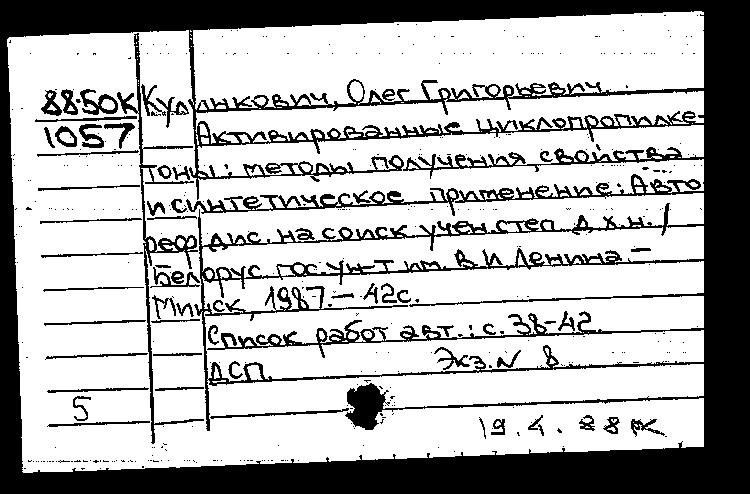 88-50К Кулинкович, Олег Григорьевич.
1057 Активированные циклопропилке-
тоны: методы получения, свойства
и синтетическое применение: Авто-
реф. дис. на соиск. учен. степ. д. х. н. /
Белорус. гос. ун-т им. В. И. Ленина. –
Минск, 1987. – 42с.
Список работ авт.: с. 38-42.
ДСП. Экз. N 8
5
19. 4. 88